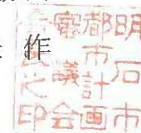 作
明石市
都市計画
審議会
会長之印